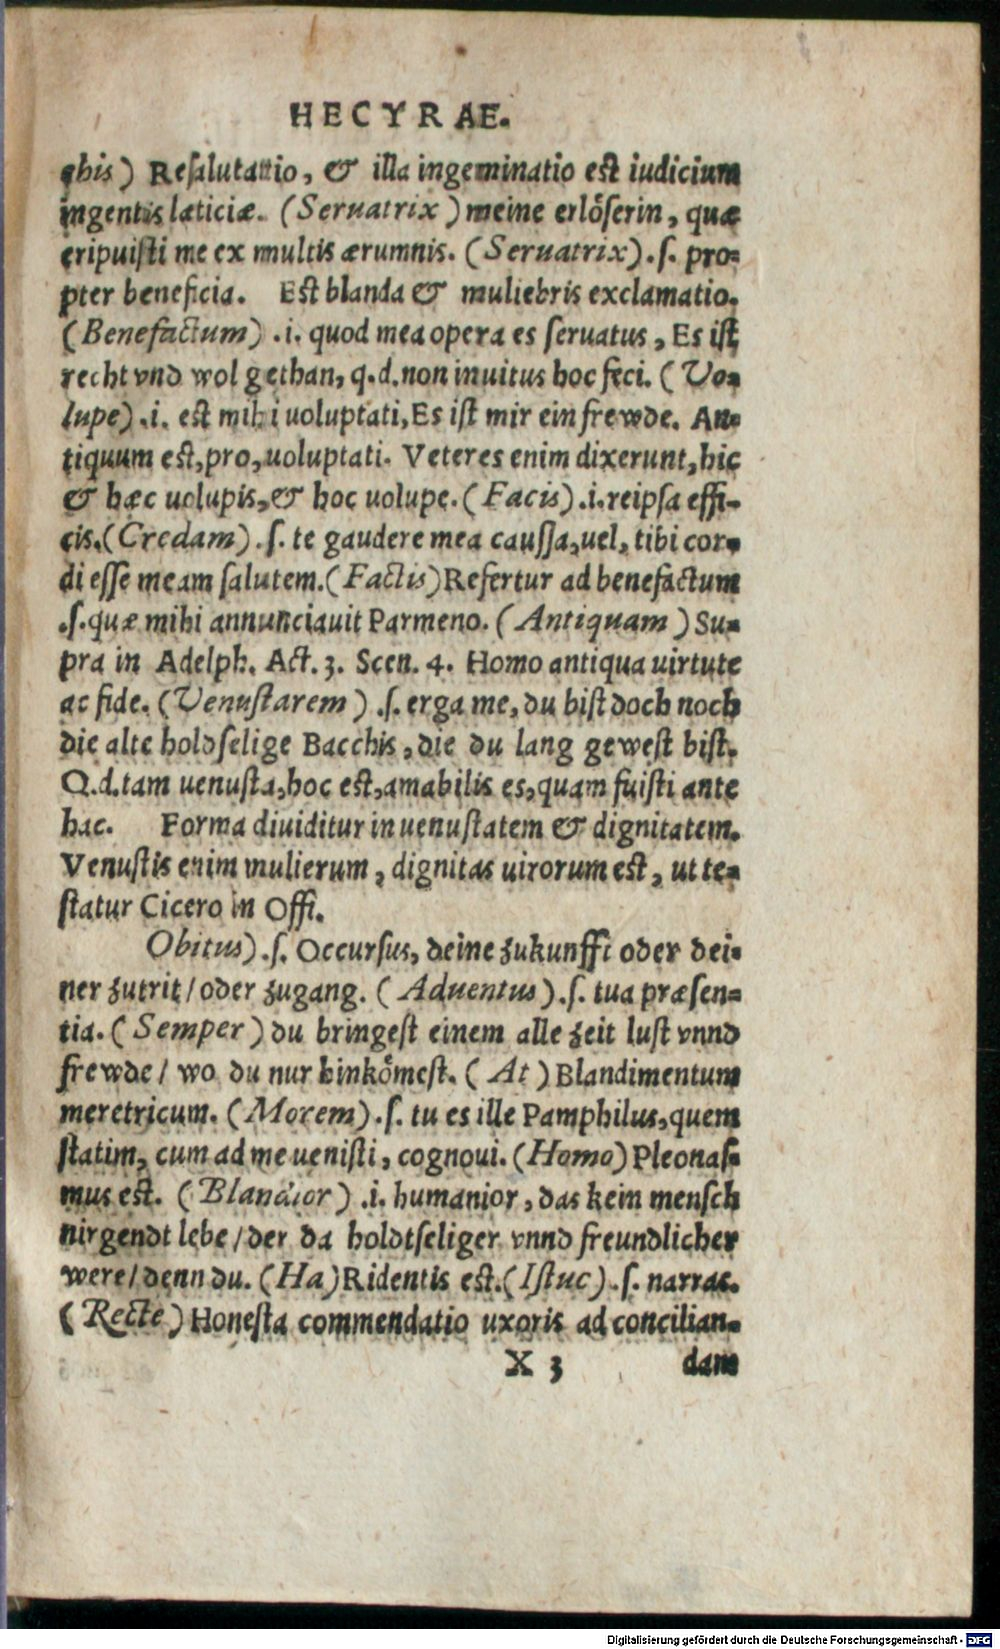 HECYRAE.
chis) Resalutatio, & illa ingeminatio est iudicium
ingentis læticiæ. (Seruatrix) meine erlöserin, quæ
eripuisti me ex multis ærumnis. (Seruatrix) .s. pro=
pter beneficia. Est blanda & muliebris exclamatio.
(Benefactum) .i. quod mea opera es seruatus, Es ist
recht vnd wol gethan, q.d. non inuitus hoc feci. (Vo=
lupe) .i. est mihi uoluptati, Es ist mir ein frewde. An=
tiquum est, pro, uoluptati. Veteres enim dixerunt, hic
& hæc uolupis, & hoc uolupe. (Facis) .i. reipsa effi-
cis. (Credam) .s. te gaudere mea caussa, uel, tibi cor=
di esse meam salutem. (Factis) Refertur ad benefactum
.s. quæ mihi annunciauit Parmeno. (Antiquam) Su=
pra in Adelph. Act. 3. Scen. 4. Homo antiqua uirtute
ac fide. (Venustatem) .s. erga me, du bist doch noch
die alte holdselige Bacchis, die du lang gewest bist.
Q.d. tam uenusta, hoc est, amabilis es, quam fuisti ante
hac. Forma diuiditur in uenustatem & dignitatem.
Venustis enim mulierum, dignitas uirorum est, ut te=
statur Cicero in Offi.
Obitus) .s. Occursus, deine zukunfft oder dei=
ner zutrit / oder zugang. (Aduentus) .s. tua præsen=
tia. (Semper) du bringest einem alle zeit lust vnnd
frewde / wo du nur hinkömest. (At) Blandimentum
meretricum. (Morem) .s. tu es ille Pamphilus, quem
statim, cum ad me uenisti, cognoui. (Homo) Pleonas=
mus est. (Blandior) .i. humanior, das kein mensch
nirgendt lebe / der da holdtseliger vnnd freundlicher
were / denn du. (Ha) Ridentis est. (Istuc) .s. narras.
(Recte) Honesta commendatio uxoris ad concilian=
X 3 dam
Digitalisierung gefördert durch die Deutsche Forschungsgemeinschaft - DFG